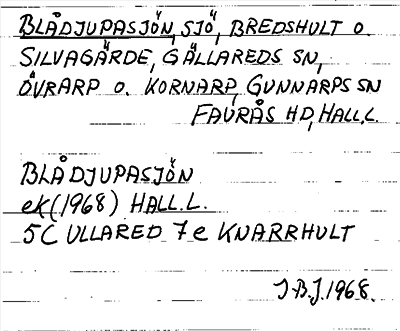 BLÅDJUPASJÖN, SJÖ, BREDSHULT O.
SILVAGÄRDE, GÄLLAREDS SN,
ÖVRARP O. KORNARP, GUNNARPS SN
FAURÅS HD, HALL.L.
BLÅDJUPASJÖN
eK(1968) HALL.L.
5C ULLARED 7e KNARRHULT
J.B.J.1968.